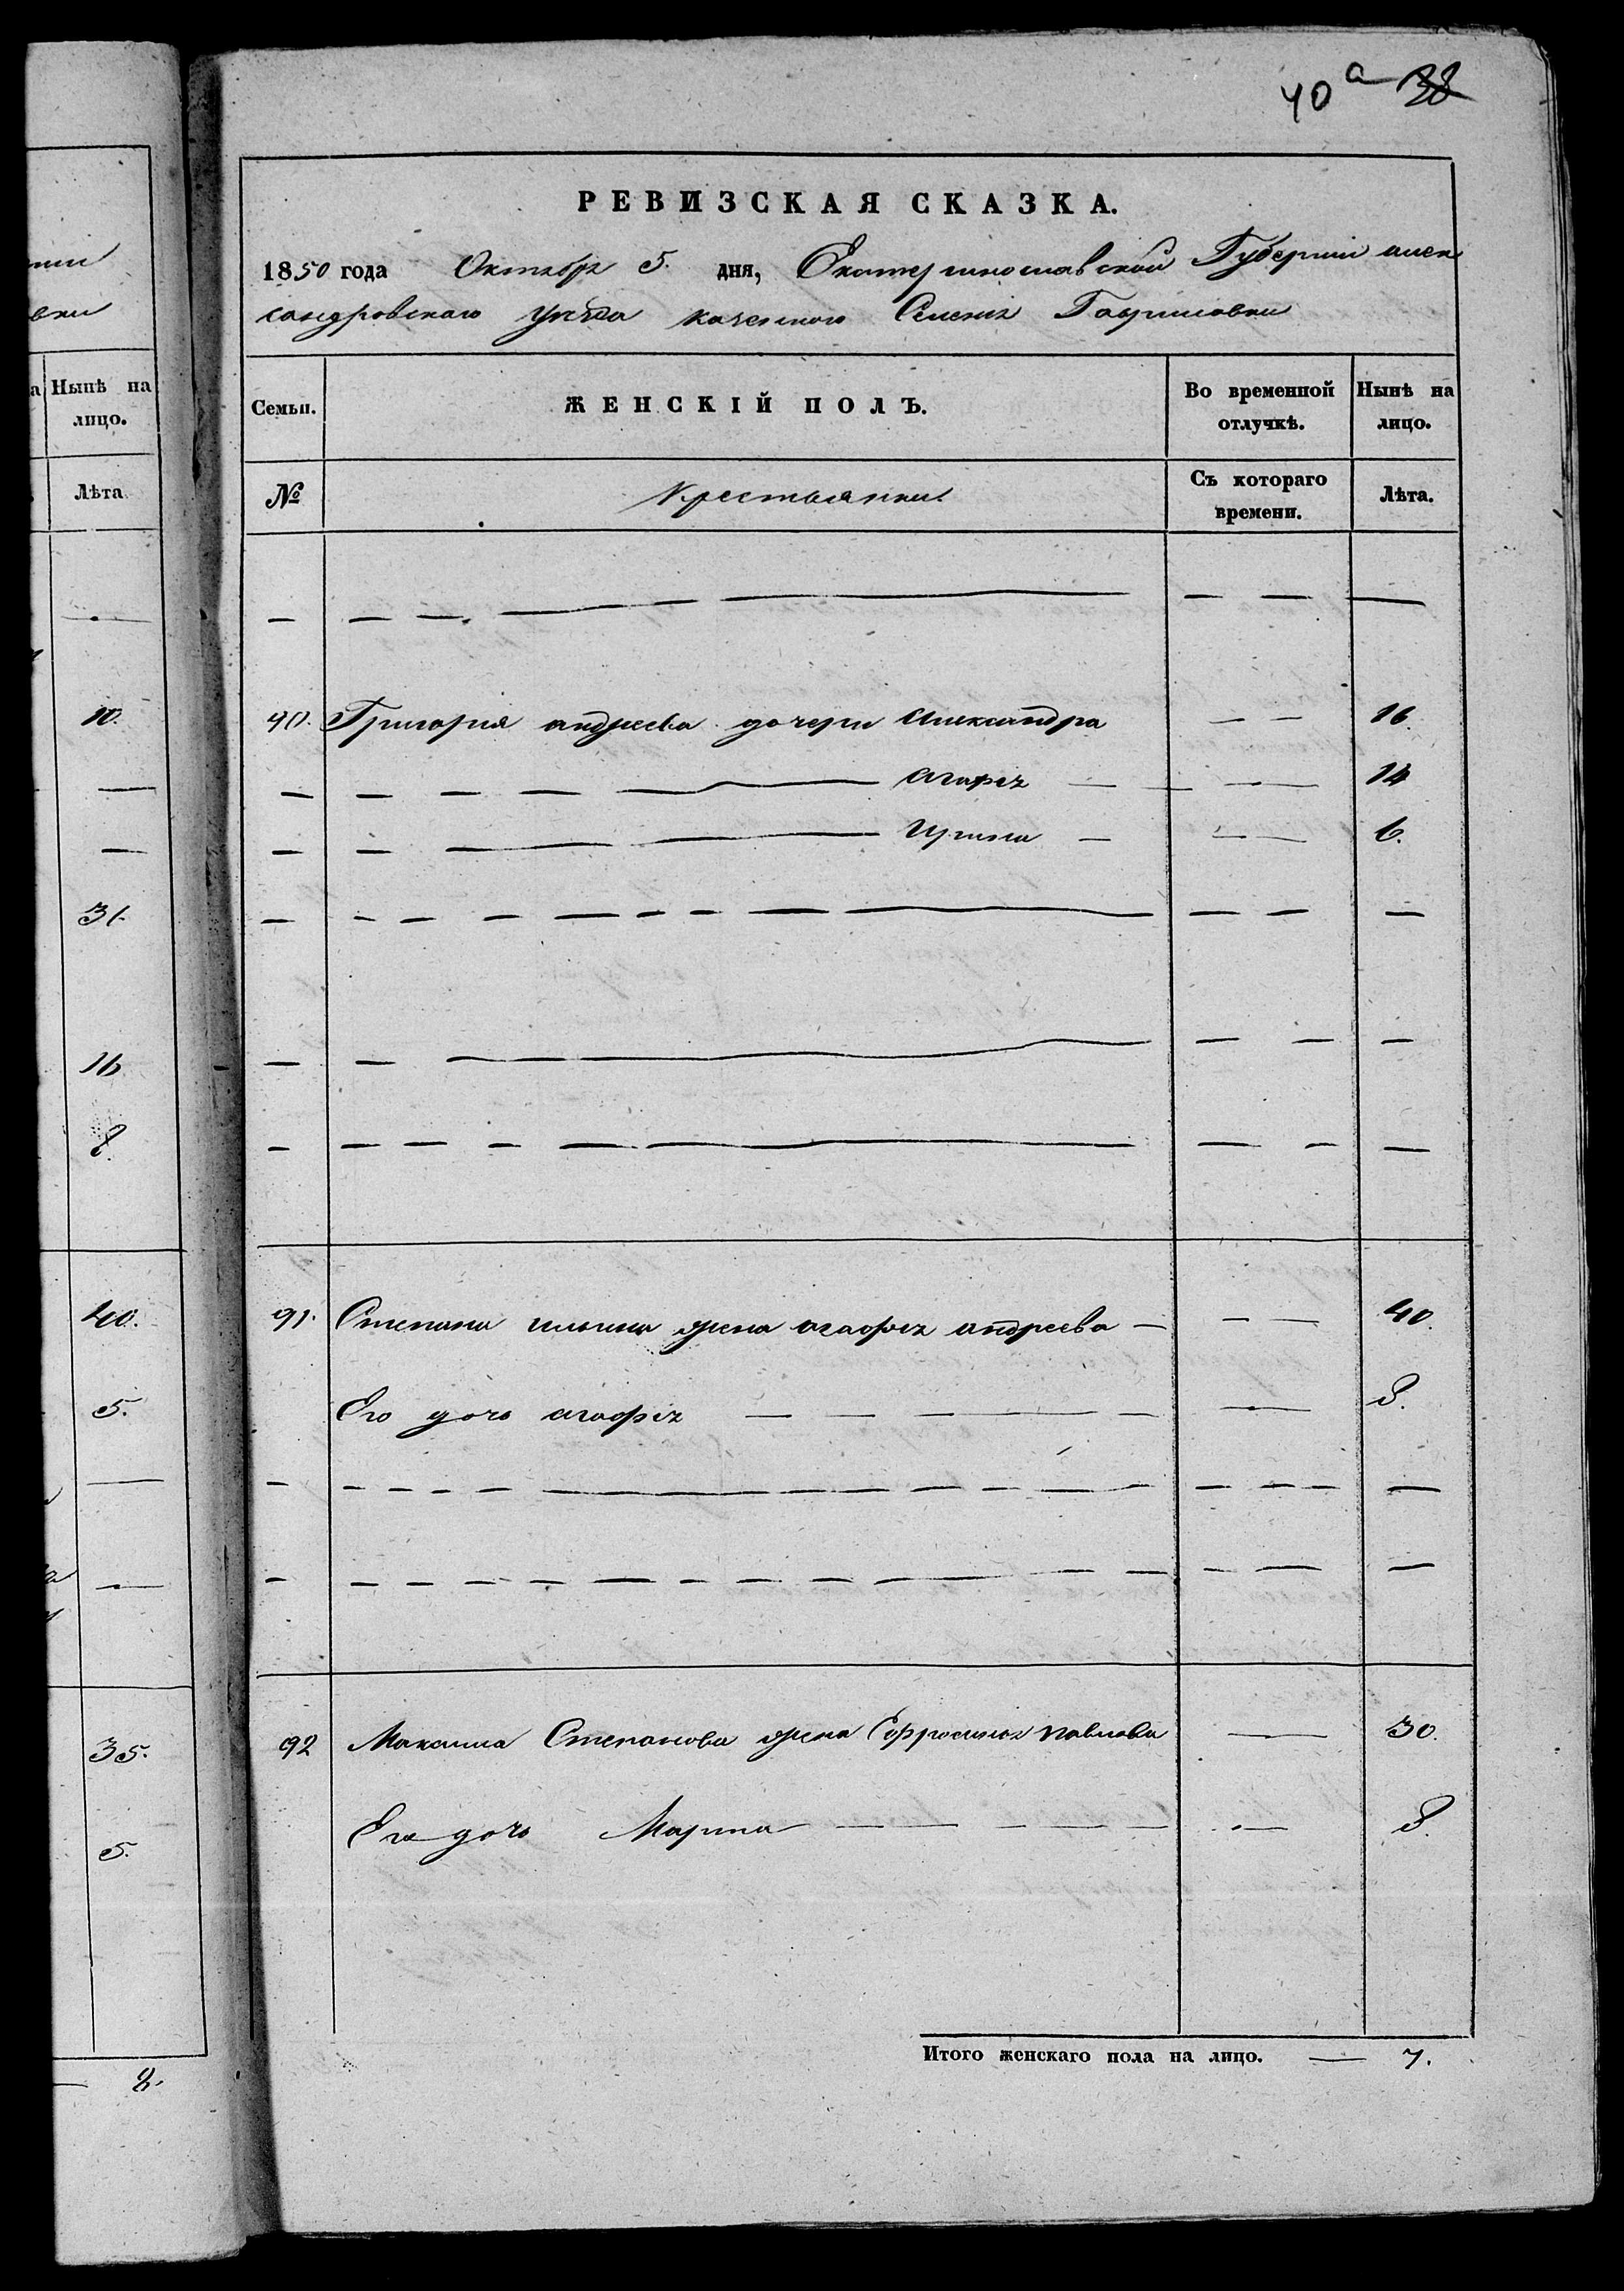 40а 38
РЕВИЗСКАЯ СКАЗКА.
1850 года Октября 5. дня, Екатеринославской Губернии алек
сандровского уезда казенного Селения Гавриловки
Семьи. ЖЕНСКІЙ ПОЛЪ. Во временной отлучкѣ. Нынѣ на лицо.
№ Крестьянки Съ котораго времени. Лѣта.
90. Григория андреева дочери александра 16.
агафия 14
Ирина 6.
91. Степана ильина жена агафия андреева 40.
Его дочь агафия 8.
92 Максима Степанова жена Ефросиния павлова 30.
Его дочь Марина 8.
Итого женскаго пола на лицо. 7.
Нынѣ на
лицо.
Лѣта
10.
31.
16
8.
40.
5.
35.
5.
8.